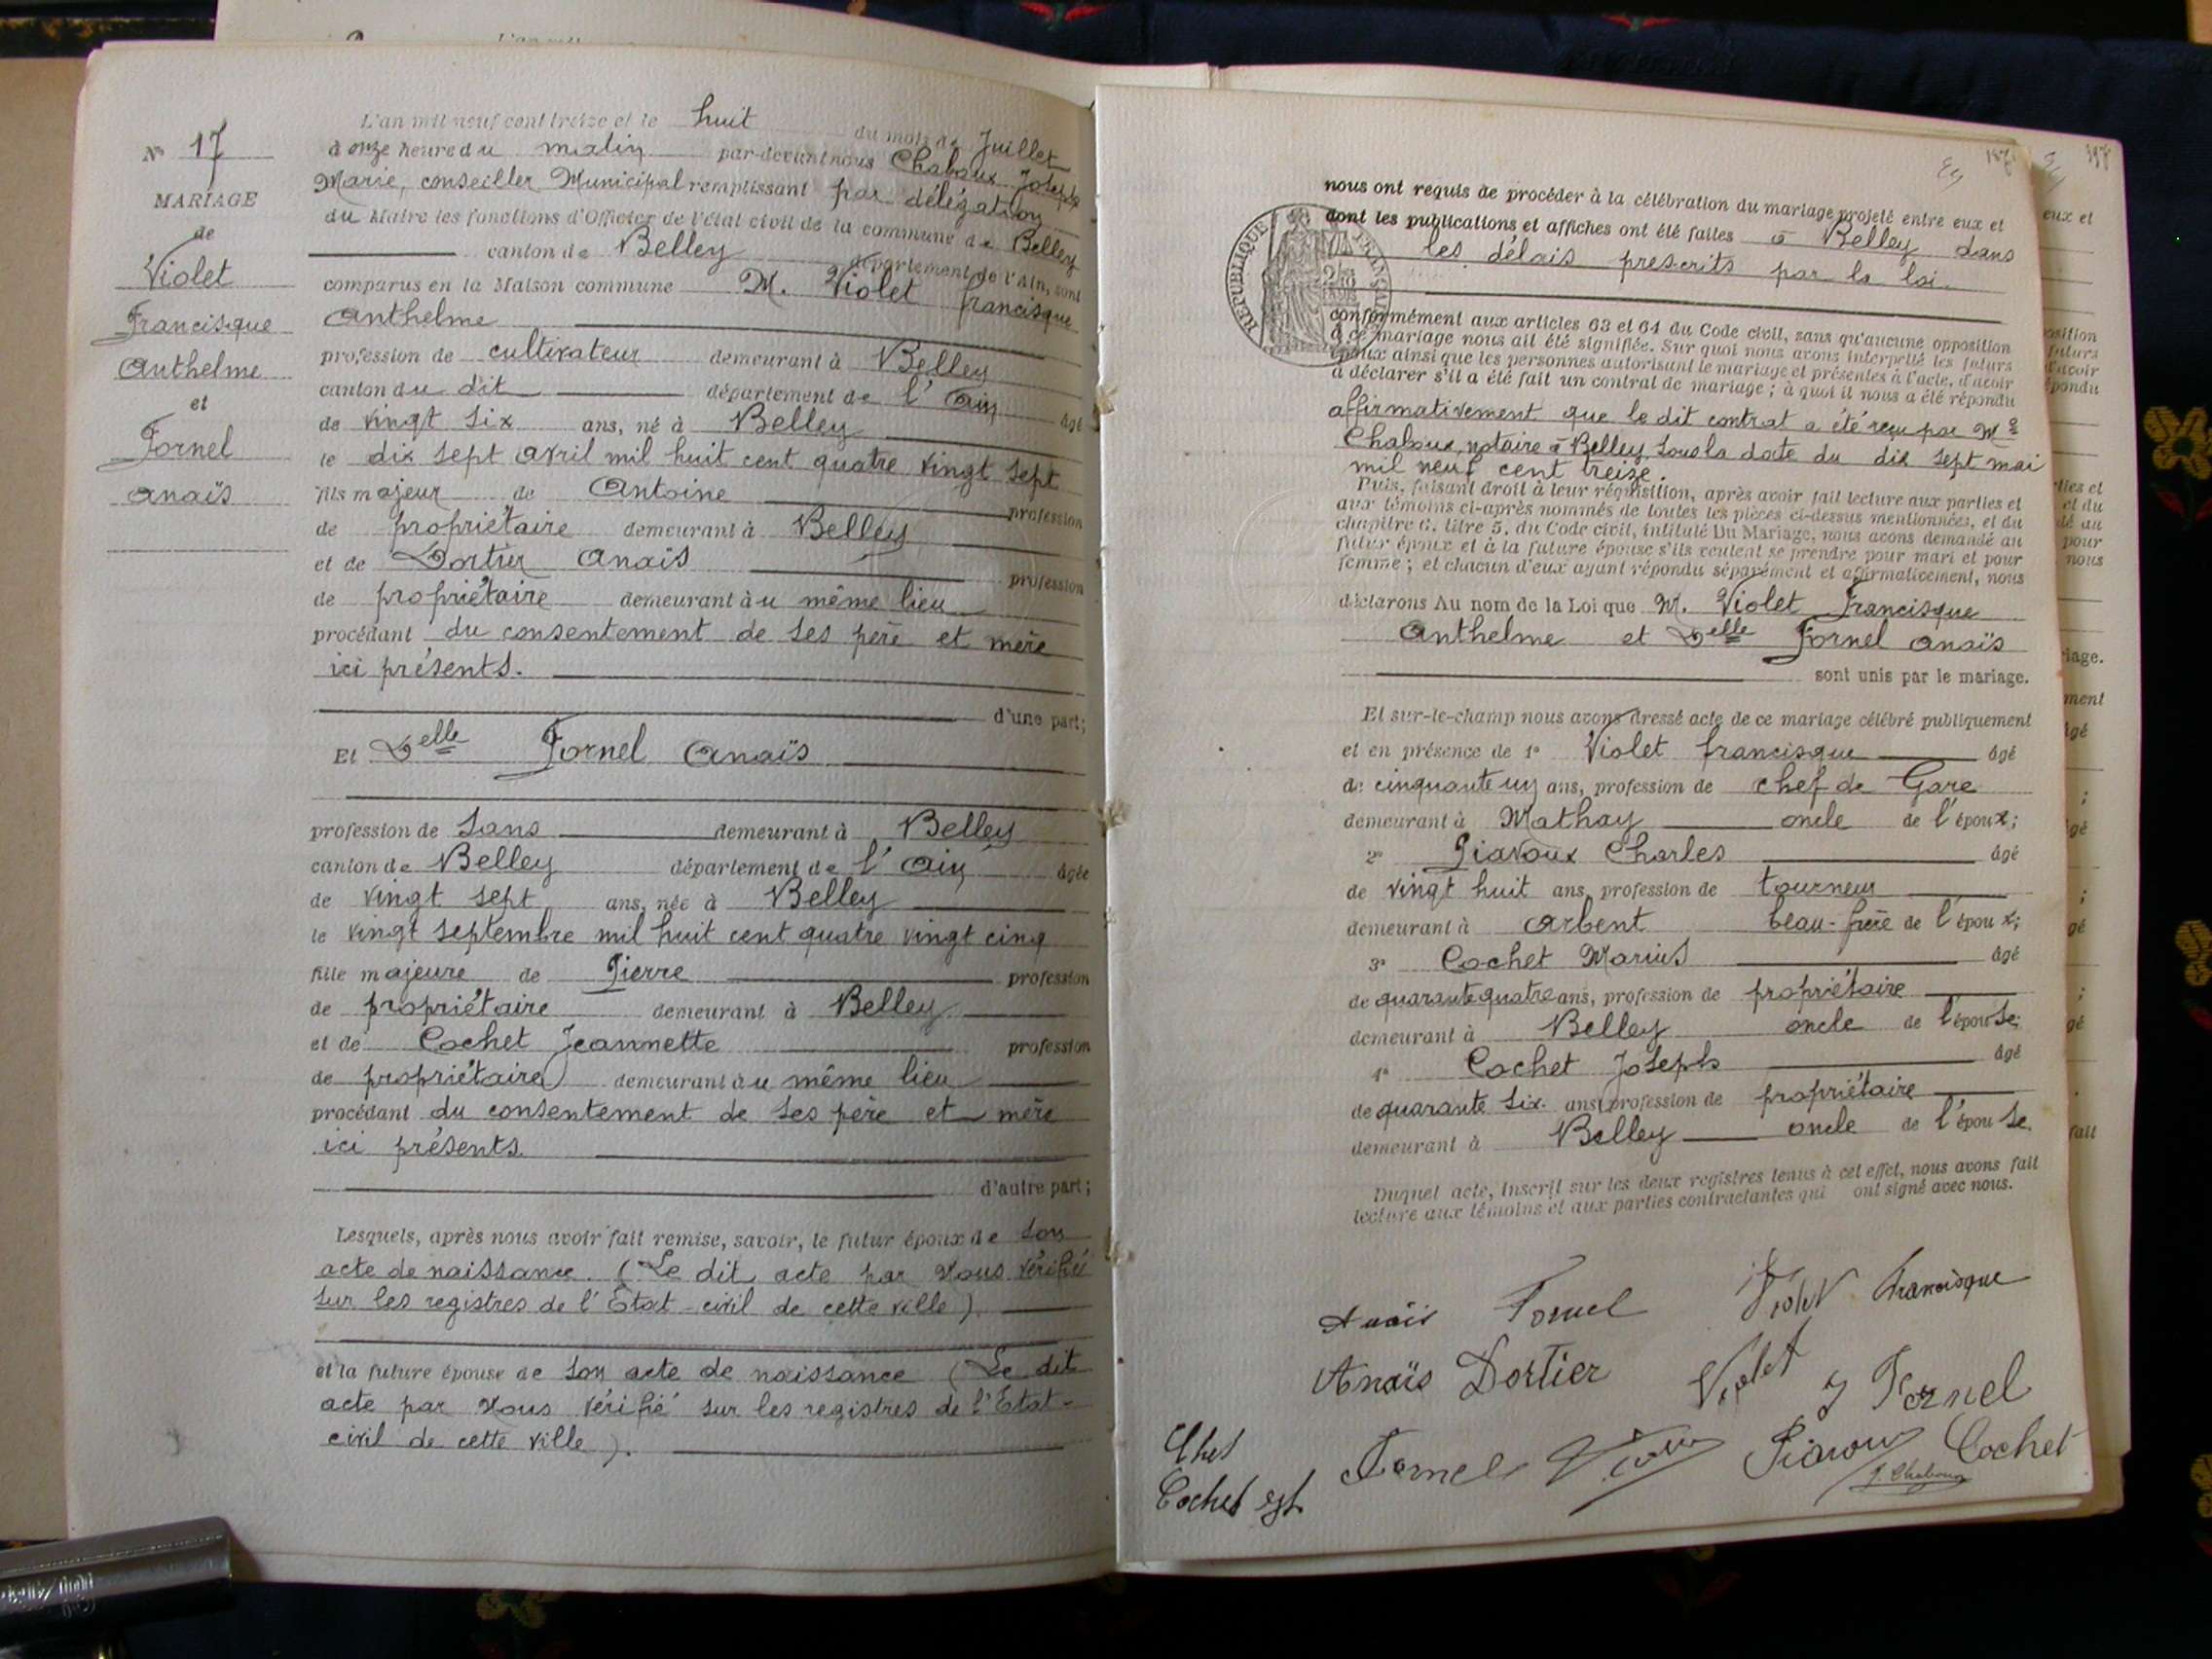 L'an mil
Nº 17
MARIAGE
de
Violet
Francisque
Anthelme
et
Fornel
Anaïs
L'an mil neuf cent treize et le huit du mois de Juillet
à onze heure du matin par-devant nous Chaboux Joseph
Marie, conseiller Municipal remplissant par délégation
du Maire les fonctions d'Officier de l'état civil de la commune de Belley
canton de Belley département de l'Ain, sont
comparus en la Maison commune M. Violet francisque
Anthelme
profession de cultivateur demeurant à Belley
canton du dit département de l'Ain âgé
de vingt six ans, né à Belley
le dix sept avril mil huit cent quatre vingt sept
fils majeur de Antoine profession
de propriétaire demeurant à Belley
et de Dortier Anaïs profession
de propriétaire demeurant àu même lieu
procédant du consentement de ses père et mère
ici présents.
d'une part;
Et Delle Fornel Anaïs
profession de sans demeurant à Belley
canton de Belley département de l'Ain âgée
de vingt sept ans, née à Belley
le vingt septembre mil huit cent quatre vingt cinq
fille majeure de Pierre profession
de propriétaire demeurant à Belley
et de Cochet Jeannette profession
de propriétaire demeurant àu même lieu
procédant du consentement de ses père et mère
ici présents.
d'autre part;
Lesquels, après nous avoir fait remise, savoir, le futur époux de son
acte de naissance. (Le dit acte par Nous vérifié
sur les registres de l'État-civil de cette ville).
et la future épouse de son acte de naissance (Le dit
acte par Nous vérifié sur les registres de l'Etat-
civil de cette ville).
RÉPUBLIQUE FRANÇAISE
nous ont requis de procéder à la célébration du mariage projeté entre eux et
dont les publications et affiches ont été faites à Belley dans
les délais prescrits par la loi.
conformément aux articles 63 et 64 du Code civil, sans qu'aucune opposition
à ce mariage nous ait été signifiée. Sur quoi nous avons interpellé les futurs
époux ainsi que les personnes autorisant le mariage et présentes à l'acte, d'avoir
à déclarer s'il a été fait un contrat de mariage; à quoi il nous a été répondu
affirmativement que le dit contrat a été reçu par Me
Chaboux, notaire à Belley, sous la date du dix sept mai
mil neuf cent treize.
Puis, faisant droit à leur réquisition, après avoir fait lecture aux parties et
aux témoins ci-après nommés de toutes les pièces ci-dessus mentionnées, et du
chapitre 6, titre 5, du Code civil, intitulé Du Mariage, nous avons demandé au
futur époux et à la future épouse s'ils veulent se prendre pour mari et pour
femme; et chacun d'eux ayant répondu séparément et affirmativement, nous
déclarons Au nom de la Loi que M. Violet Francisque
Anthelme et Delle Fornel Anaïs
sont unis par le mariage.
Et sur-le-champ nous avons dressé acte de ce mariage célébré publiquement
et en présence de 1º Violet francisque âgé
de cinquante un ans, profession de chef de Gare
demeurant à Mathay oncle de l'époux;
2º Piavoux Charles âgé
de vingt huit ans, profession de tourneur
demeurant à Arbent beau-frère de l'époux;
3º Cochet Marius âgé
de quarante quatre ans, profession de propriétaire
demeurant à Belley oncle de l'épouse;
4º Cochet Joseph âgé
de quarante six ans, profession de propriétaire
demeurant à Belley oncle de l'épouse.
Duquel acte, inscrit sur les deux registres tenus à cet effet, nous avons fait
lecture aux témoins et aux parties contractantes qui ont signé avec nous.
Anaïs Fornel Violet Francisque
Anaïs Dortier Violet J Fornel
Fornel Piavoux Cochet
Cochet J. Chaboux
eux et
position
futurs
d'avoir
épondu
rties et
et du
dé au
pour
nous
riage.
ment
âgé
;
gé
;
gé
;
gé
fait